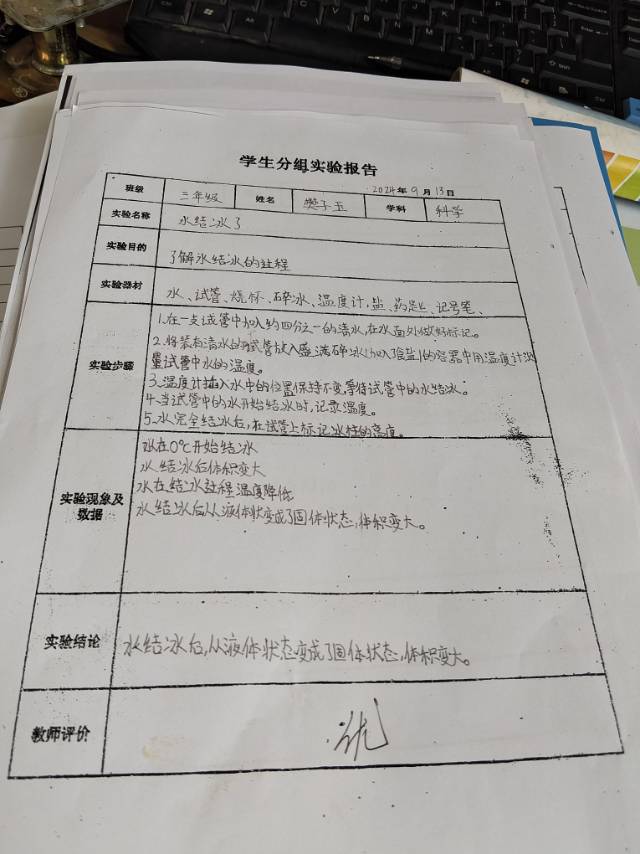 学生分组实验报告
2024年9月13日
班级 三年级 姓名 樊子五 学科 科学
实验名称 水结冰了
实验目的 了解水结冰的过程
实验器材 水、试管、烧杯、碎冰、温度计、盐、药匙、记号笔、
实验步骤
1.在一支试管中加入约四分之一的清水,在水面处做好标记。
2.将装有清水的试管放入盛满碎冰(加入食盐)的容器中用温度计测
量试管中水的温度。
3.温度计插入水中的位置保持不变,等待试管中的水结冰。
4.当试管中的水开始结冰时,记录温度。
5.水完全结冰后,在试管上标记冰柱的高度。
实验现象及
数据
水在0℃开始结冰
水结冰后体积变大
水在结冰过程温度降低
水结冰后从液体状变成了固体状态,体积变大。
实验结论 水结冰后,从液体状态变成了固体状态,体积变大。
教师评价 优